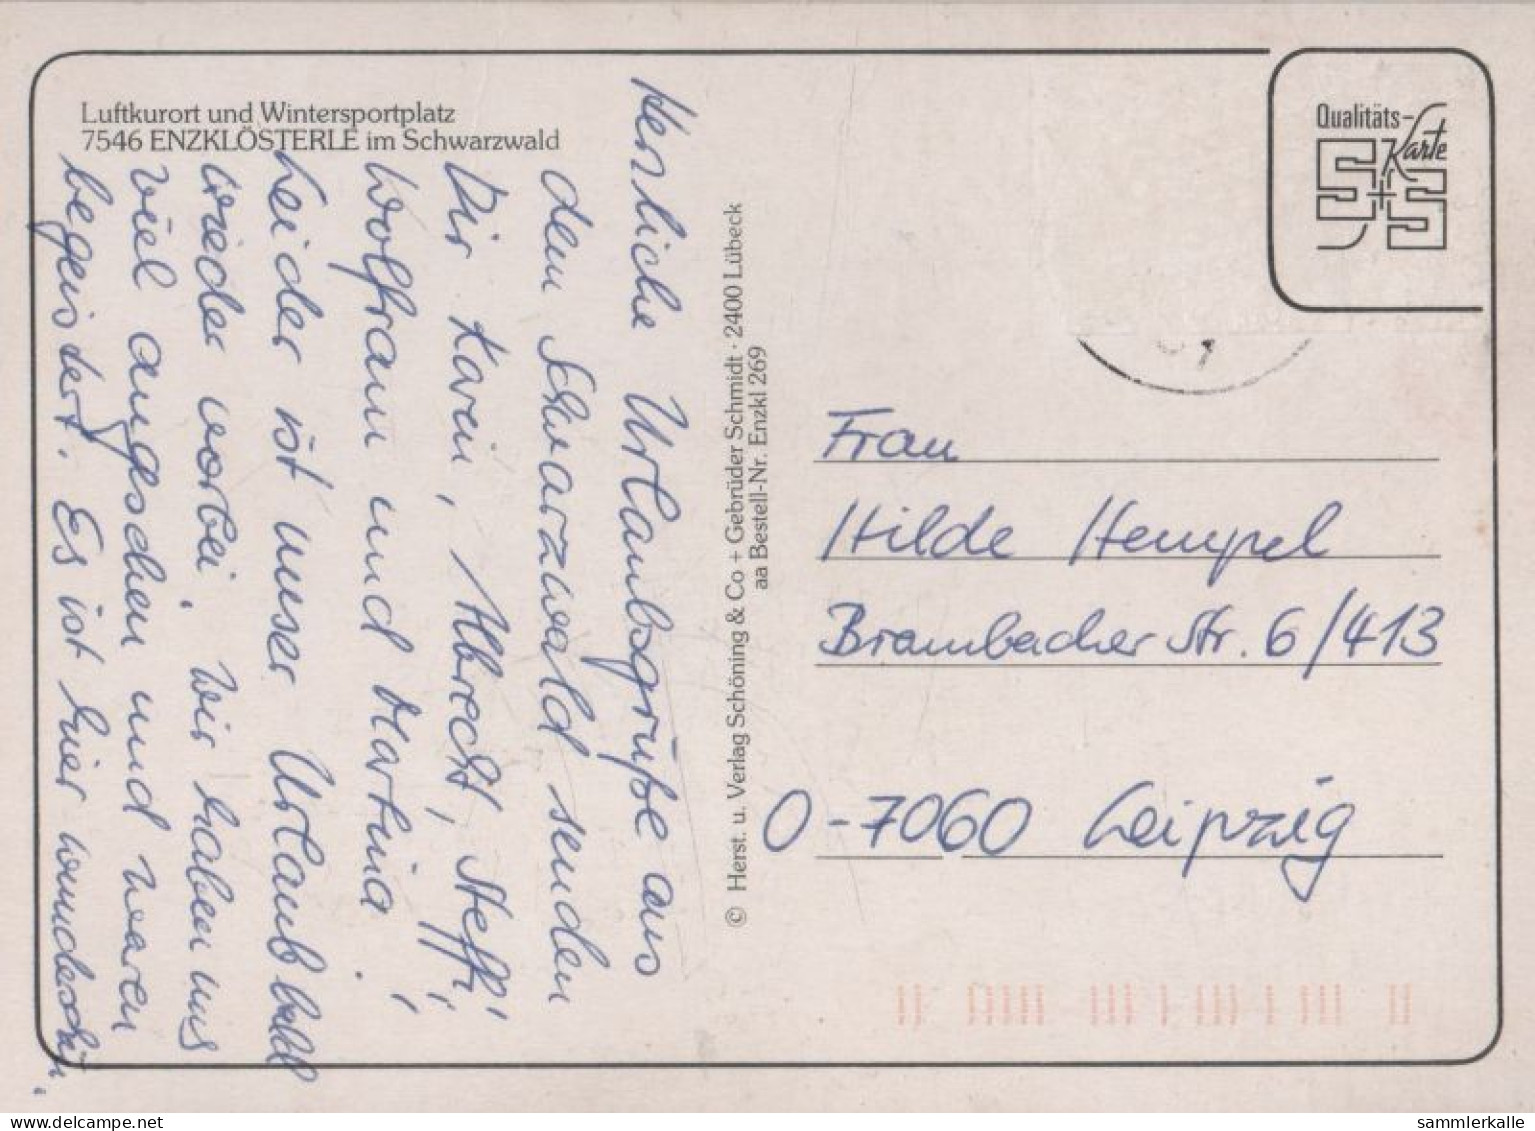 Luftkurort und Wintersportplatz
7546 ENZKLÖSTERLE im Schwarzwald
Herzliche Urlaubsgrüße aus
dem Schwarzwald senden
Dir Karin, Albrecht, Steffi,
Wolfram und Martina.
Leider ist unser Urlaub bald
wieder vorbei. Wir haben uns
viel angesehen und waren
begeistert. Es ist hier wunderschön.
© Herst. u. Verlag Schöning & Co + Gebrüder Schmidt · 2400 Lübeck
aa Bestell-Nr. Enzkl 269
Qualitäts-
Karte
S+S
Frau
Hilde Hempel
Brambacher Str. 6/413
O-7060 Leipzig
delcampe.net
sammlerkalle